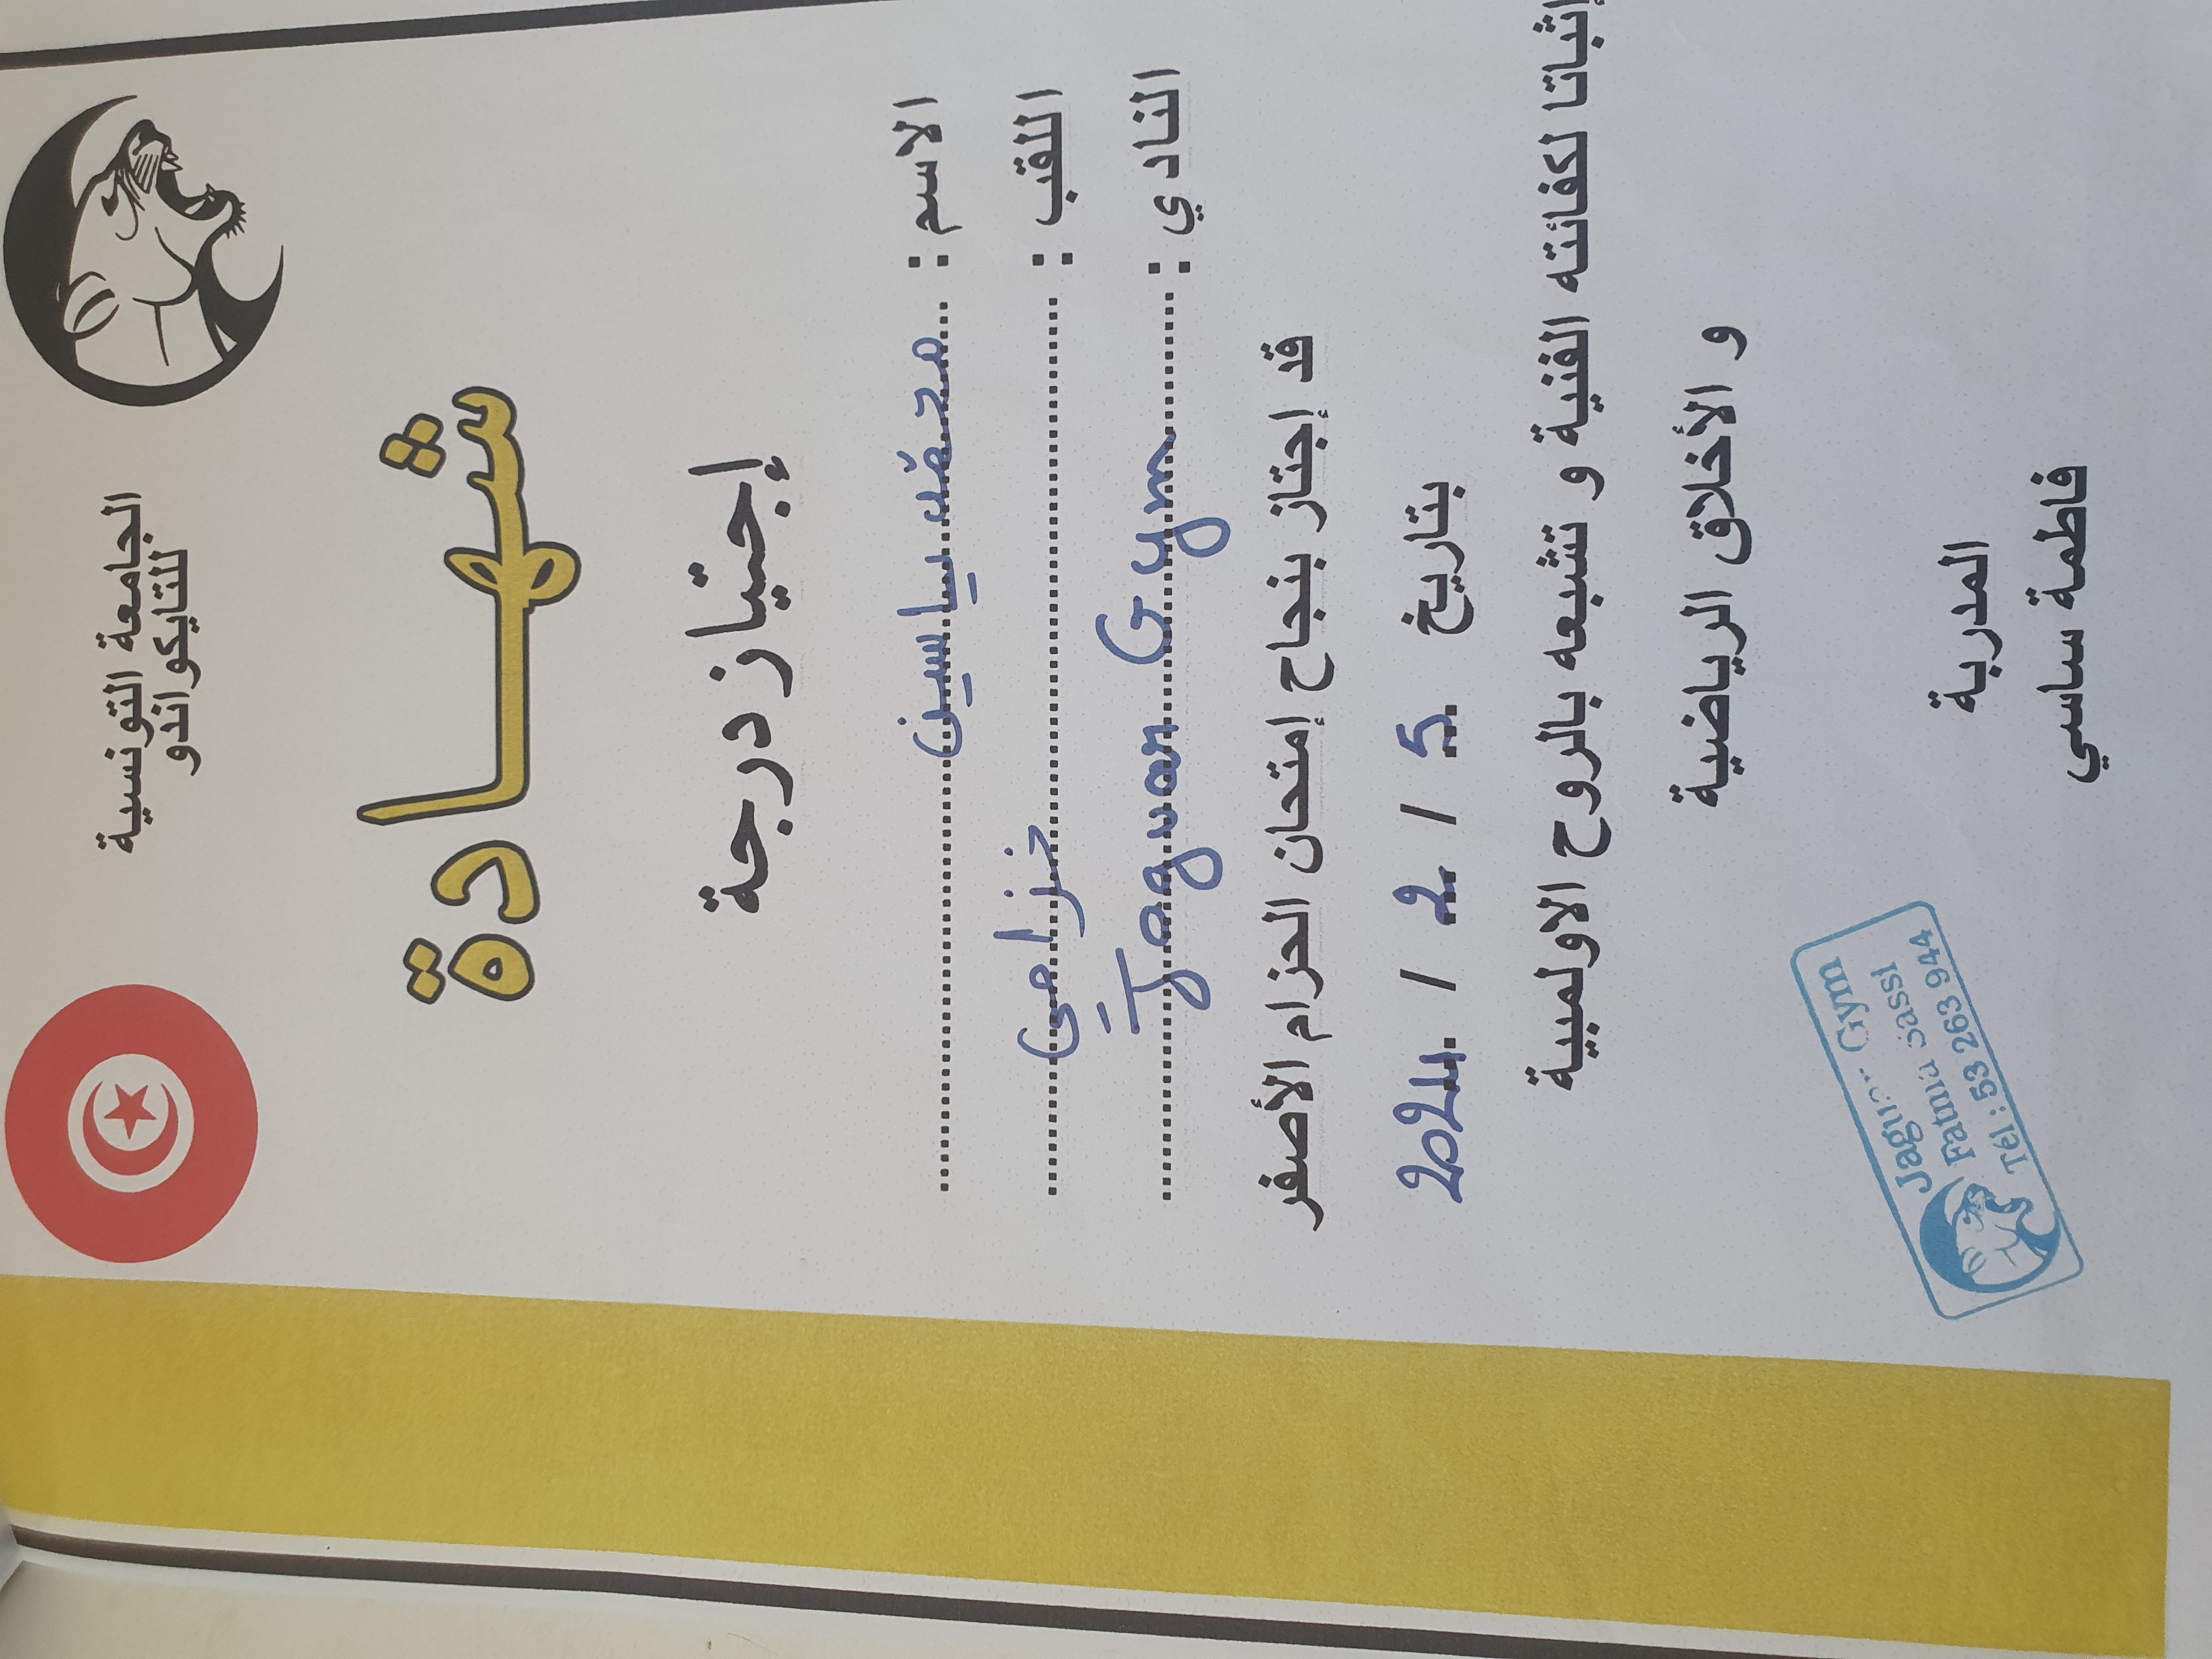 الجامعة التونسية
للتايكواندو
شهادة
إجتياز درجة
الاسم : محمّد ياسين
اللقب : خزامي
النادي : Jaguar Gym
قد إجتاز بنجاح إمتحان الحزام الأصفر
بتاريخ 5 / 2 / 2021
إثباتا لكفائته الفنية و تشبعه بالروح الاولمبية
و الأخلاق الرياضية
المدربة
فاطمة ساسي
Jaguar Gym
Fatma Sassi
Tél : 53 263 944